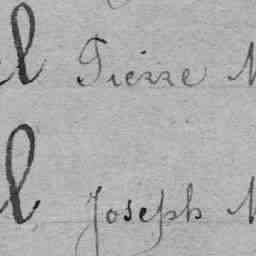 l Pierre M
l Joseph M